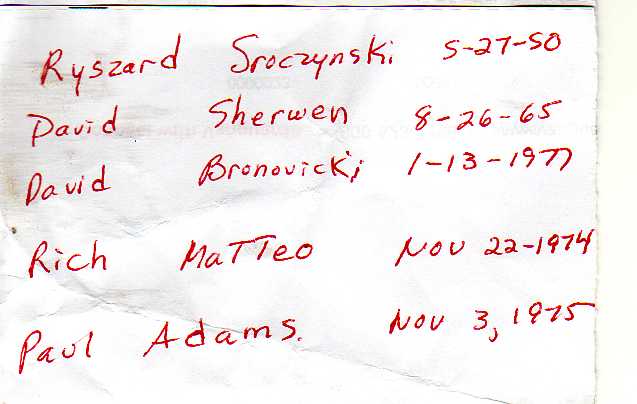 Ryszard Sroczynski 5-27-50
David Sherwen 8-26-65
David Bronovicki 1-13-1977
Rich MaTTeo Nov 22-1974
Paul Adams. Nov 3, 1975